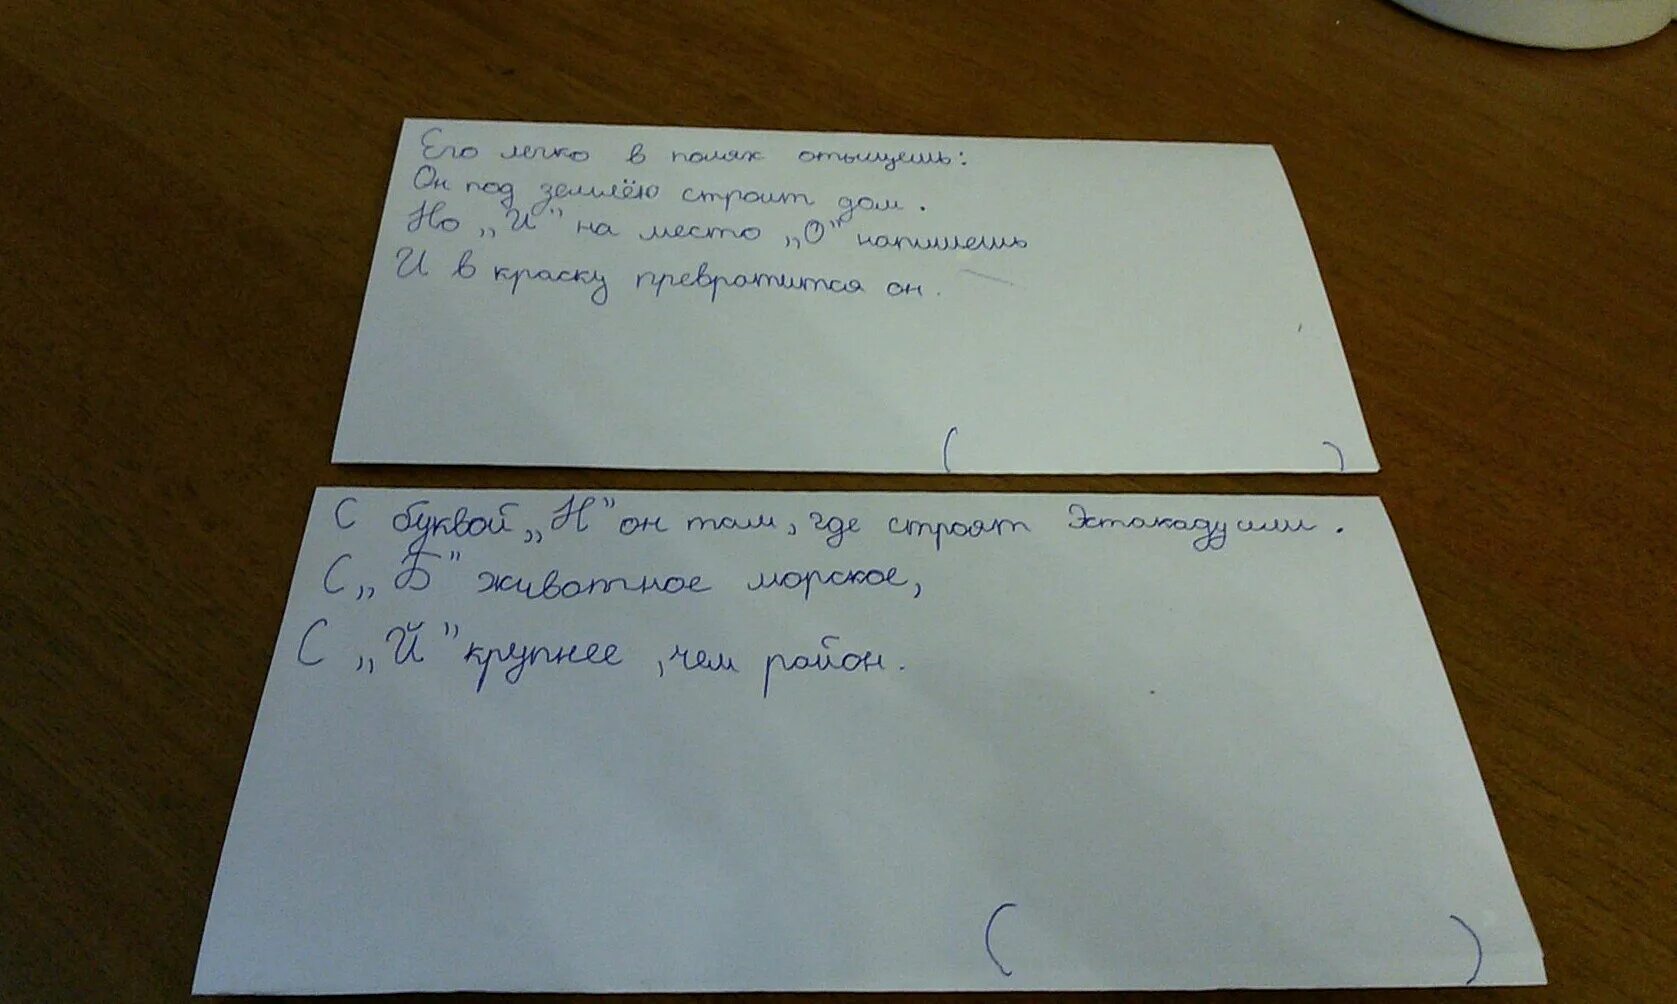 Его легко в полях отыщешь:
Он под землёю строит дом.
Но „И" на место „О" напишешь
И в краску превратится он.
( )
С буквой „Н" он там, где строят Эстакаду или.
С „Б" животное морское,
С „Й" крупнее, чем район.
( )